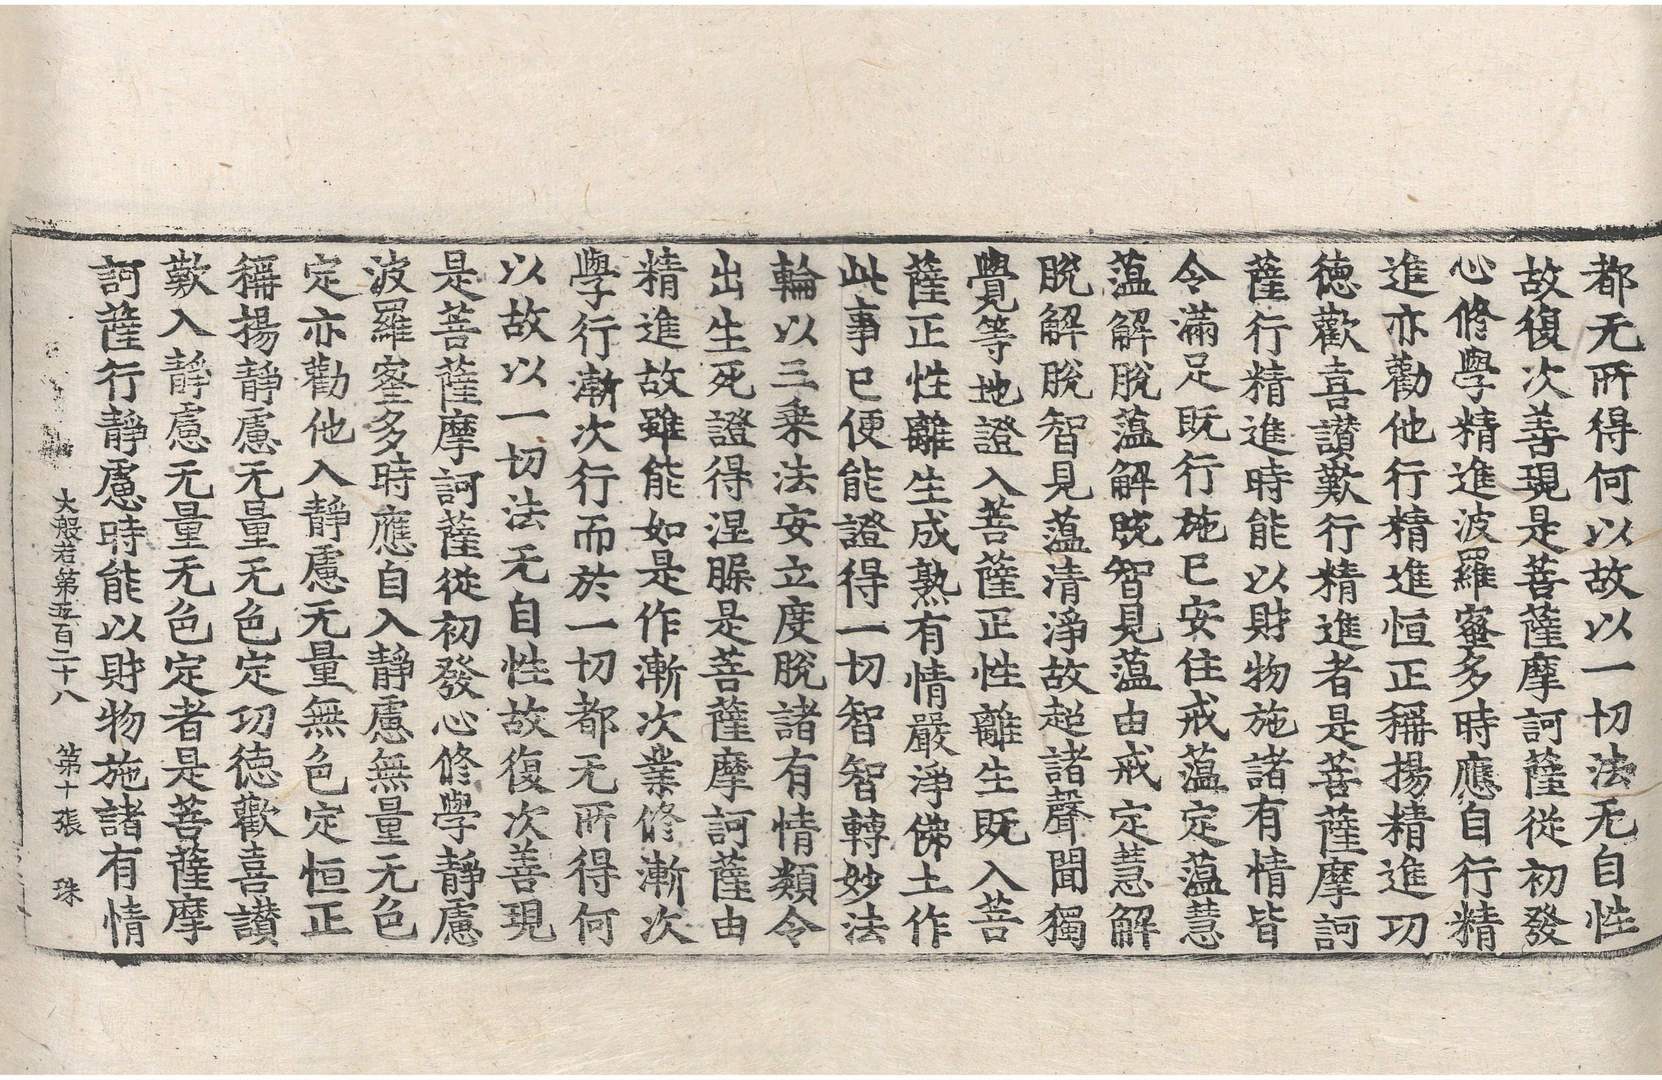 都无所得何以故以一切法无自性
故復次善現是菩薩摩訶薩從初發
心修學精進波羅蜜多時應自行精
進亦勸他行精進恒正稱揚精進功
德歡喜讃歎行精進者是菩薩摩訶
薩行精進時能以財物施諸有情皆
令滿足既行施已安住戒蕰定蕰慧
蕰解脫蕰解脫智見蕰由戒定慧解
脫解脫智見蕰清淨故超諸聲聞獨
覺等地證入菩薩正性離生既入菩
薩正性離生成熟有情嚴淨佛土作
此事已便能證得一切智智轉妙法
輪以三乗法安立度脫諸有情類令
出生死證得涅槃是菩薩摩訶薩由
精進故雖能如是作漸次業修漸次
學行漸次行而於一切都无所得何
以故以一切法无自性故復次善現
是菩薩摩訶薩從初發心修學靜慮
波羅蜜多時應自入靜慮無量无色
定亦勸他入靜慮无量無色定恒正
稱揚靜慮无量无色定功德歡喜讃
歎入靜慮无量无色定者是菩薩摩
訶薩行靜慮時能以財物施諸有情
大般若第五百二十八　第十張　珠